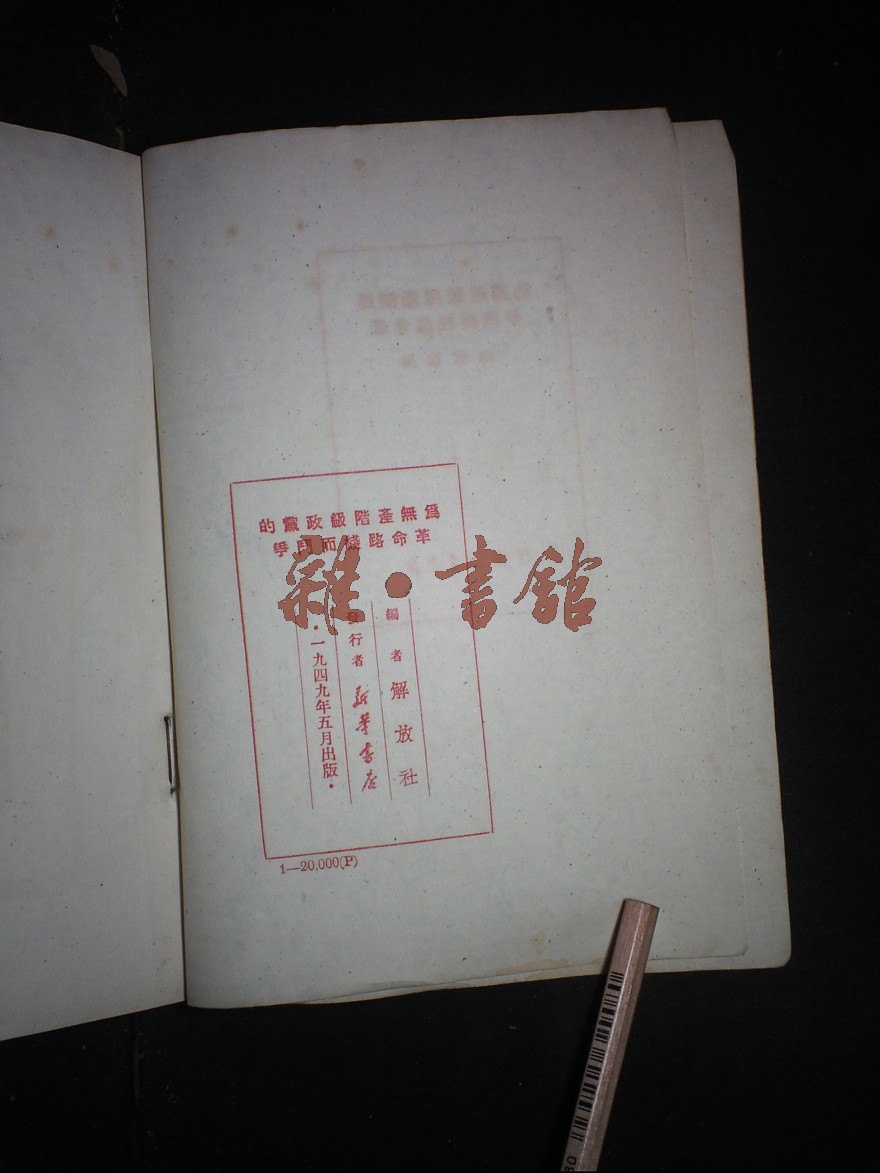 爲無產階級政黨的
革命路綫而鬥爭
雜·書館
編者 解放社
發行者 新華書店
·一九四九年五月出版·
1—20,000(P)